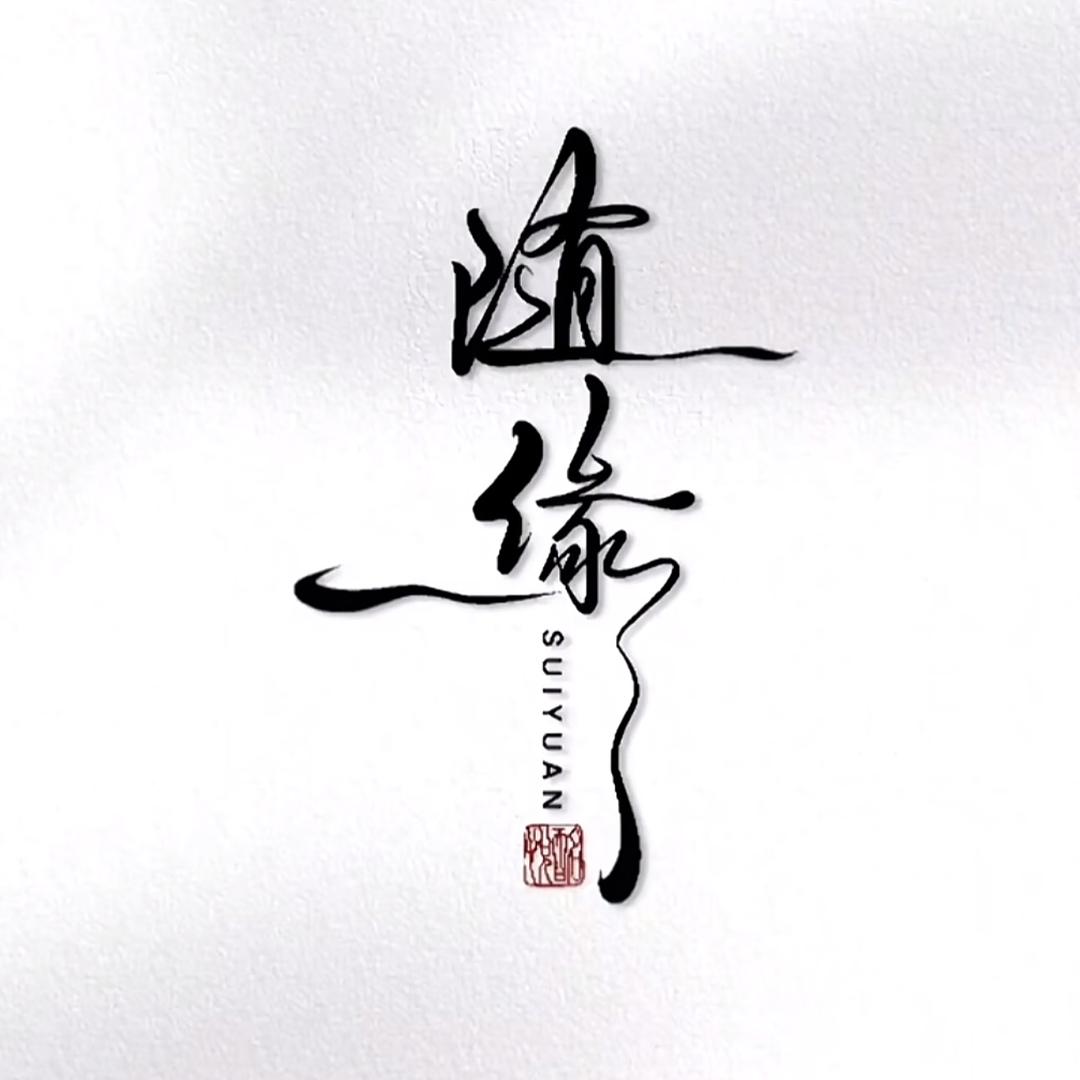 随
缘
SUIYUAN